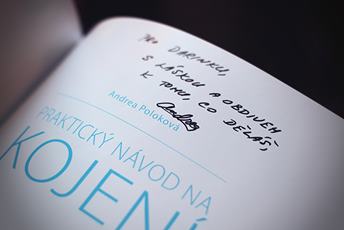 PRO DARINKU,
S LÁSKOU A OBDIVEM
K TOMU, CO DĚLÁŠ,
Andrea
Andrea Poloková
PRAKTICKÝ NÁVOD NA
KOJENÍ